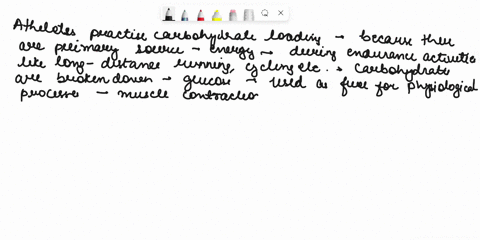 Atheletes practise carbohydrate loading → because they
are primary source → energy → during endurance activities
like long-distance running, cycling etc. → Carbohydrates
are broken down → glucose → used as fuel for physiological
processes → muscle contraction